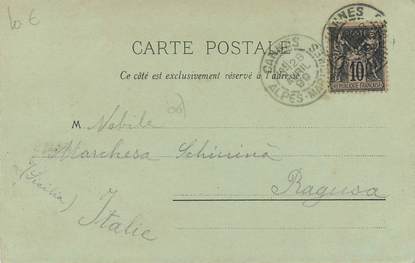 10 €
CARTE POSTALE
Ce côté est exclusivement réservé à l'adresse
CANNES
ALPES-MAR
10
RÉPUBLIQUE FRANÇAISE
M. Nobile
Marchesa Schininà
Ragusa
(Sicilia)
Italie